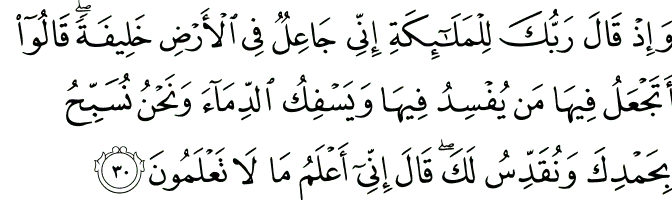 وَإِذۡ قَالَ رَبُّكَ لِلۡمَلَـٰٓئِكَةِ إِنِّي جَاعِلٞ فِي ٱلۡأَرۡضِ خَلِيفَةٗۖ قَالُوٓاْ
أَتَجۡعَلُ فِيهَا مَن يُفۡسِدُ فِيهَا وَيَسۡفِكُ ٱلدِّمَآءَ وَنَحۡنُ نُسَبِّحُ
بِحَمۡدِكَ وَنُقَدِّسُ لَكَۖ قَالَ إِنِّيٓ أَعۡلَمُ مَا لَا تَعۡلَمُونَ ٣٠